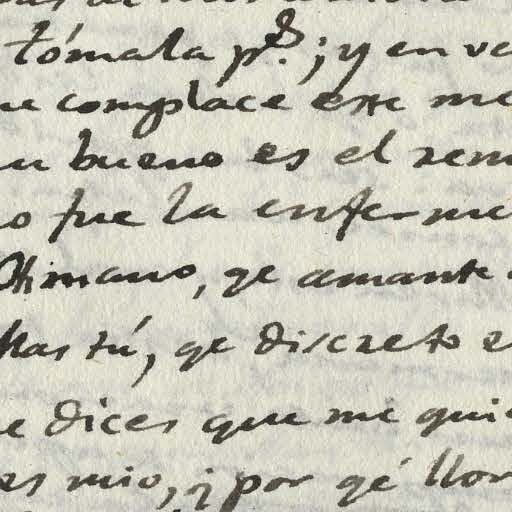 tómala p.s; y en ve
ue complace este me
u bueno es el rem
o fue la enferme
Otimano, qe amante
Mas tú, qe discreto e
e dices que me quie
es mio, ¿por qé llor